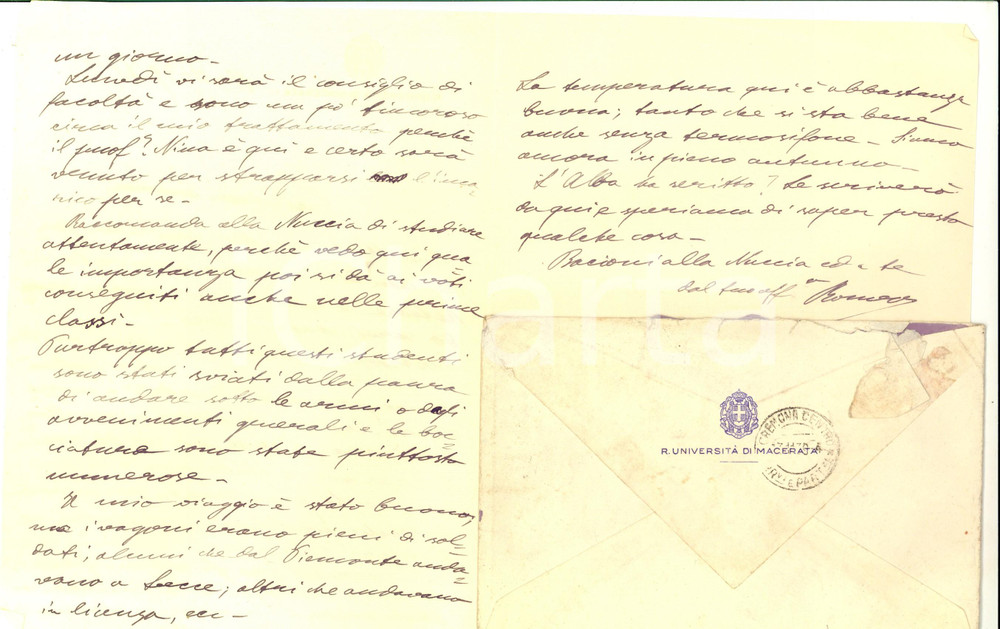 un giorno -
Lunedì vi sarà il consiglio di
facoltà e sono un po' timoroso
circa il mio trattamento perchè
il prof. Nina è quì e certo sarà
venuto per strapparsi l'inca
rico per se -
Raccomanda alla Nuccia di studiare
attentamente, perchè vedo qui qua
le importanza poi si dà ai voti
conseguiti anche nelle prime
classi -
Purtroppo tutti questi studenti
sono stati sviati dalla paura
di andare sotto le armi o dagli
avvenimenti generali e le boc=
ciature sono state piuttosto
numerose -
Il mio viaggio è stato buono,
ma i vagoni erano pieni di sol=
dati; alcuni che dal Piemonte anda=
vano a Lecce; altri che andavano
in licenza, ecc -
La temperatura qui è abbastanza
buona; tanto che si sta bene
anche senza termosifone - Siamo
ancora in pieno autunno -
L'Alba ha scritto? Le scriverò
da qui e speriamo di saper presto
qualche cosa -
Bacioni alla Nuccia ed a te
dal tuo aff
R. UNIVERSITÀ DI MACERATA
CREMONA CENTRO